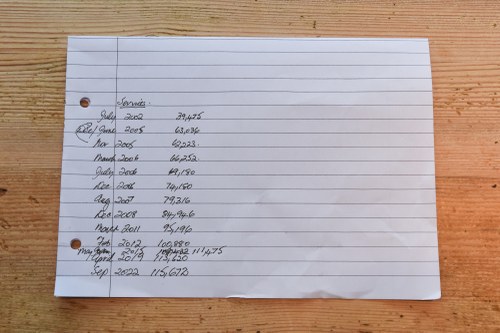 Services.
July 2002 39,475
June 2005 63,036
Nov 2005 62,223
March 2006 66,252
July 2006 69,180
Dec 2006 74,180
Aug 2007 79,316
Dec 2008 84,946
March 2011 95,196
Feb 2012 100,880
May 2015 111,475
April 2019 113,650
Sep 2022 115,672